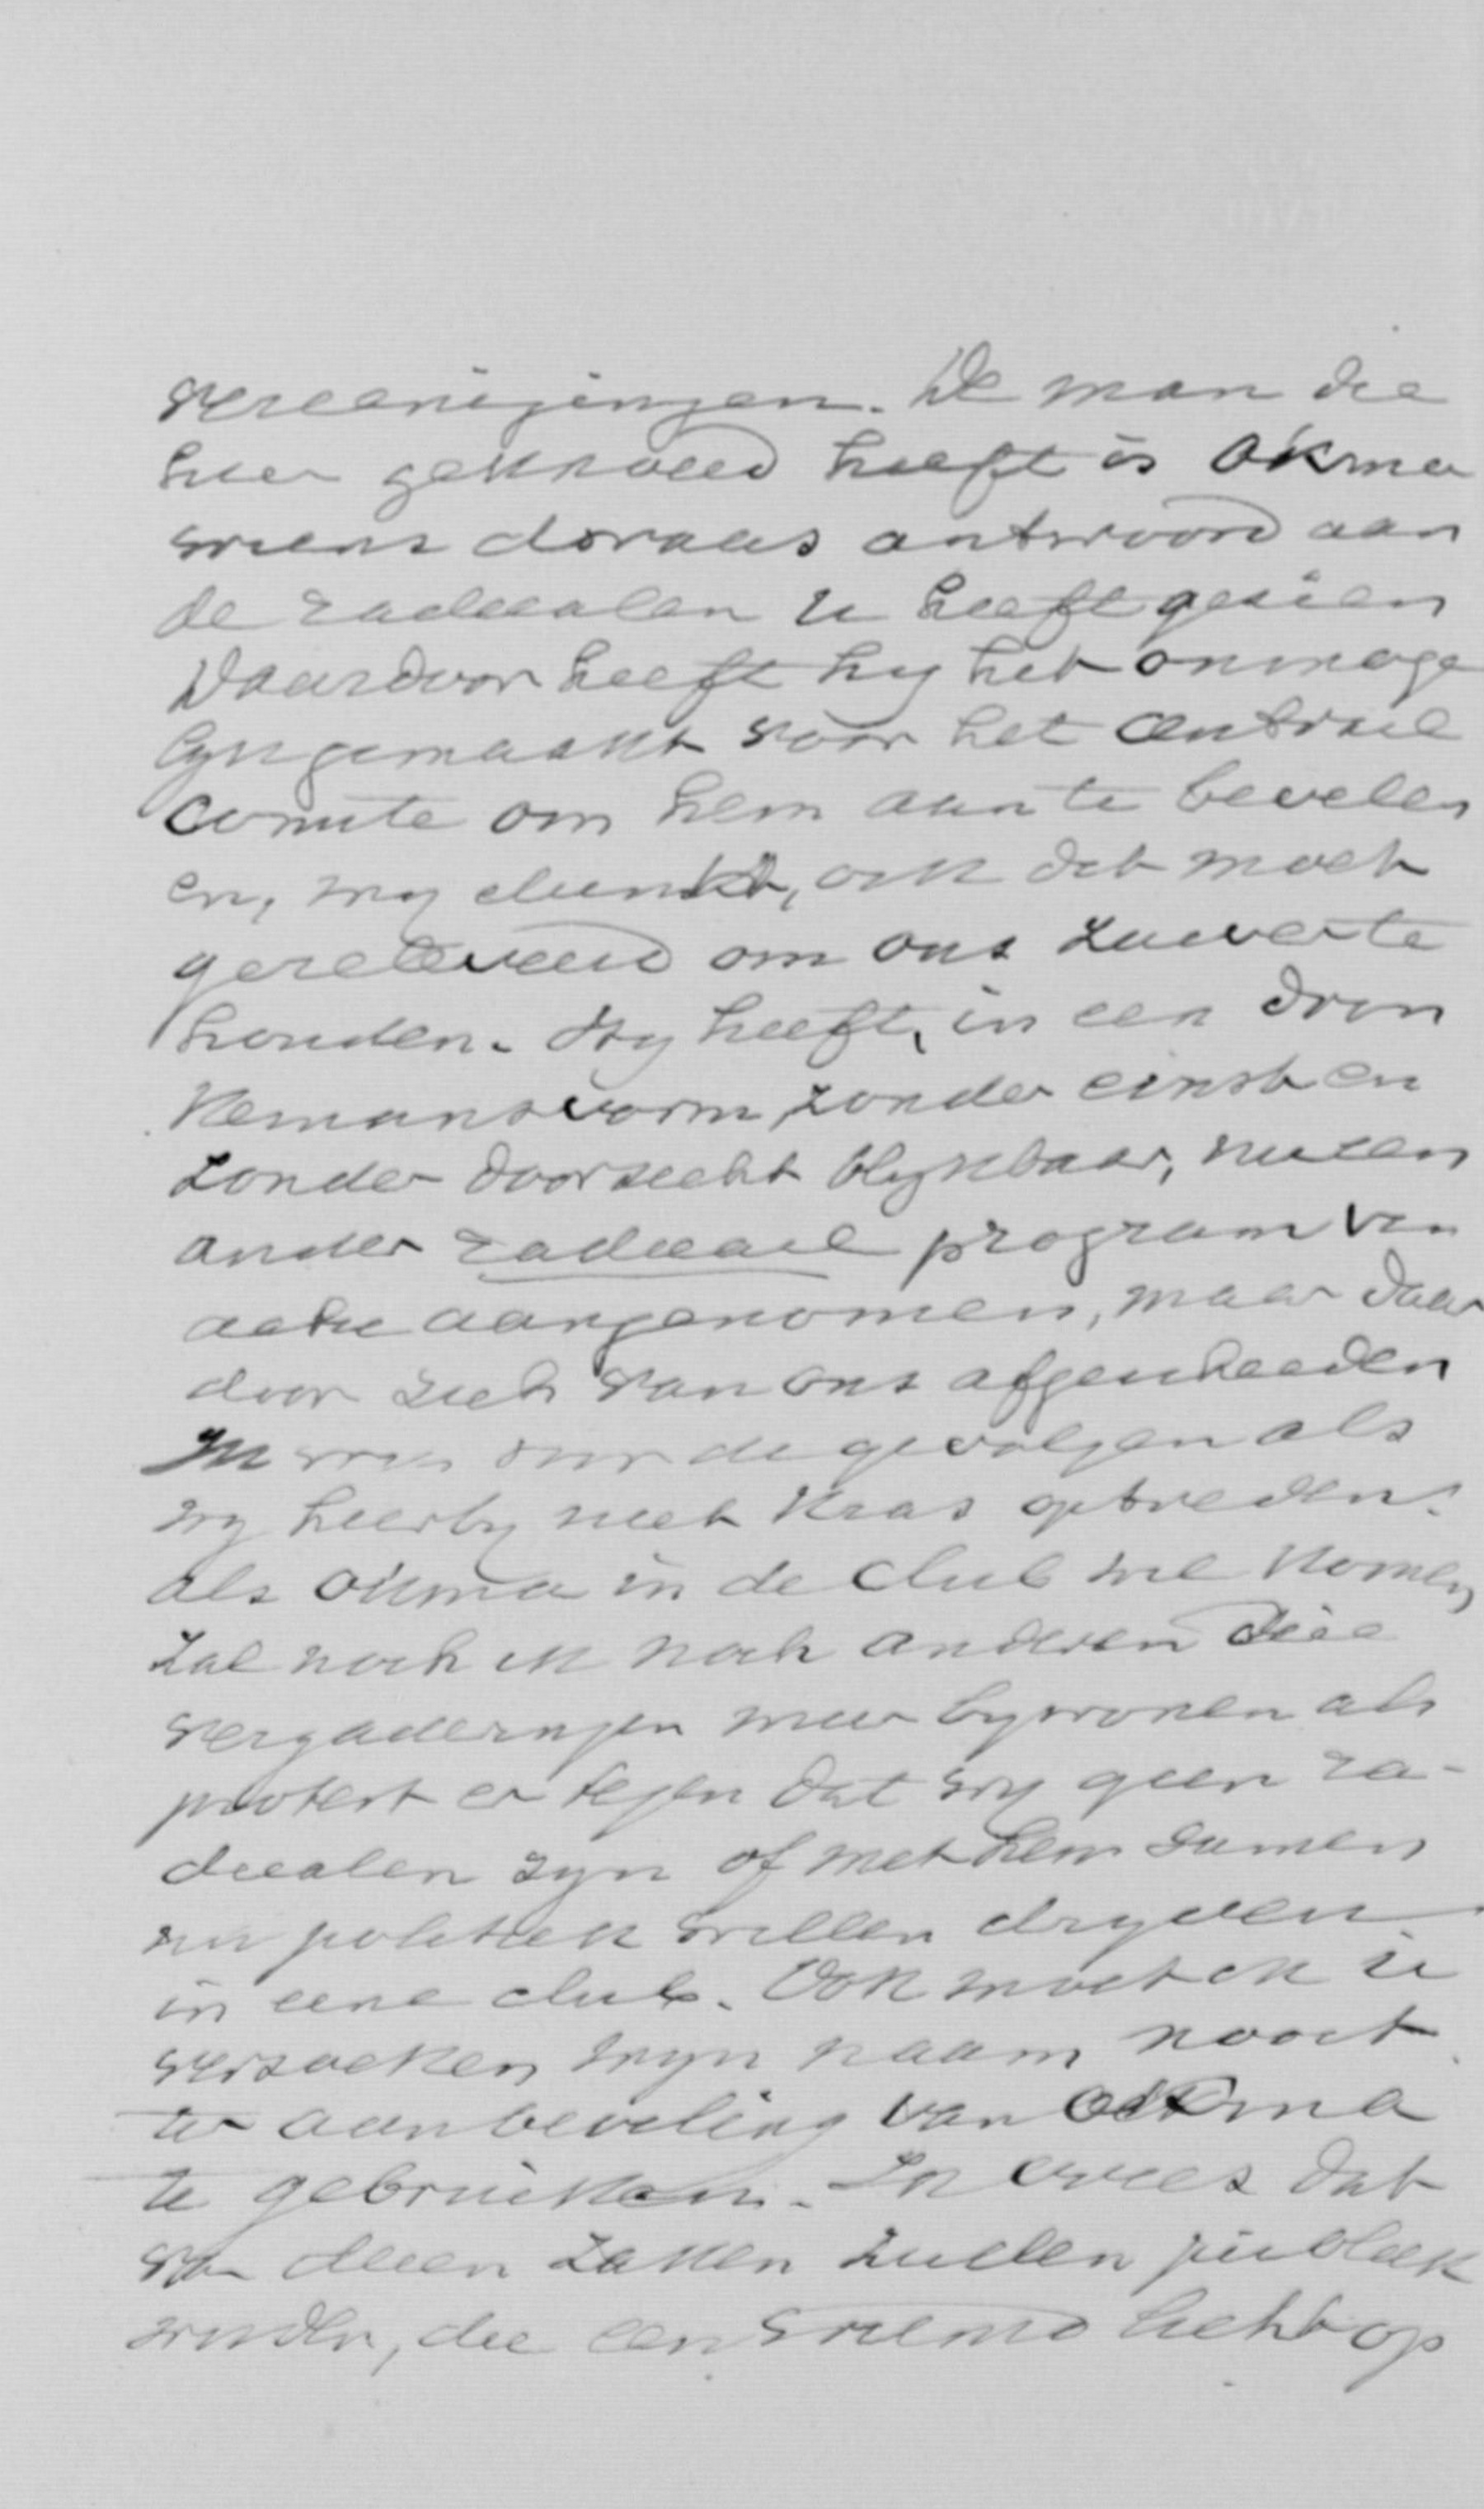 vereenigingen. De man die
hier geknoeid heeft is Okma
wiens dwaas antwoord aan
de radicalen U heeft gezien
Daardoor heeft hy het onmoge
lyk gemaakt voor het Centraal
Comite om hem aan te bevelen
en, my dunkt, ook dat moet
gereleveerd om ons zuiver te
houden. Hy heeft, in een dron
kemansvorm, zonder ernst en
zonder doorzicht blykbaar, nu een
ander radicaal program van
actie aangenomen, maar daar
door zich van ons afgescheiden
Ik vrees voor de gevolgen als
wy hierby niet kras optreden:
als Okma in de club wil komen
zal noch ik noch anderen die
vergaderingen meer bywonen als
protest er tegen dat wy geen ra-
dicalen zyn of met hem samen
nu politiek willen dryven
in eene club. Ook moet ik U
verzoeken myn naam nooit
ter aanbeveling van Okma
te gebruiken. Ik vrees dat
er dezen zaken zullen publiek
worden, die een vreemd licht op